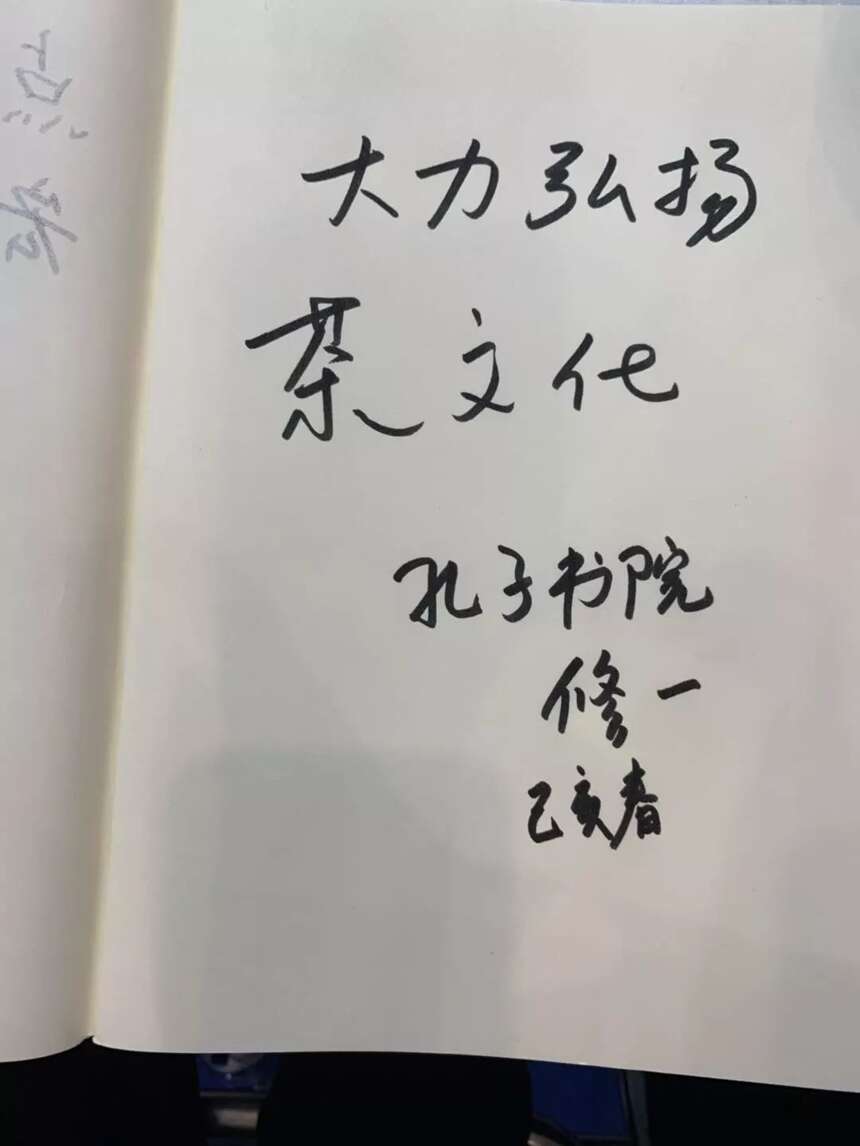 大力弘扬
茶文化
孔子书院
修一
己亥春